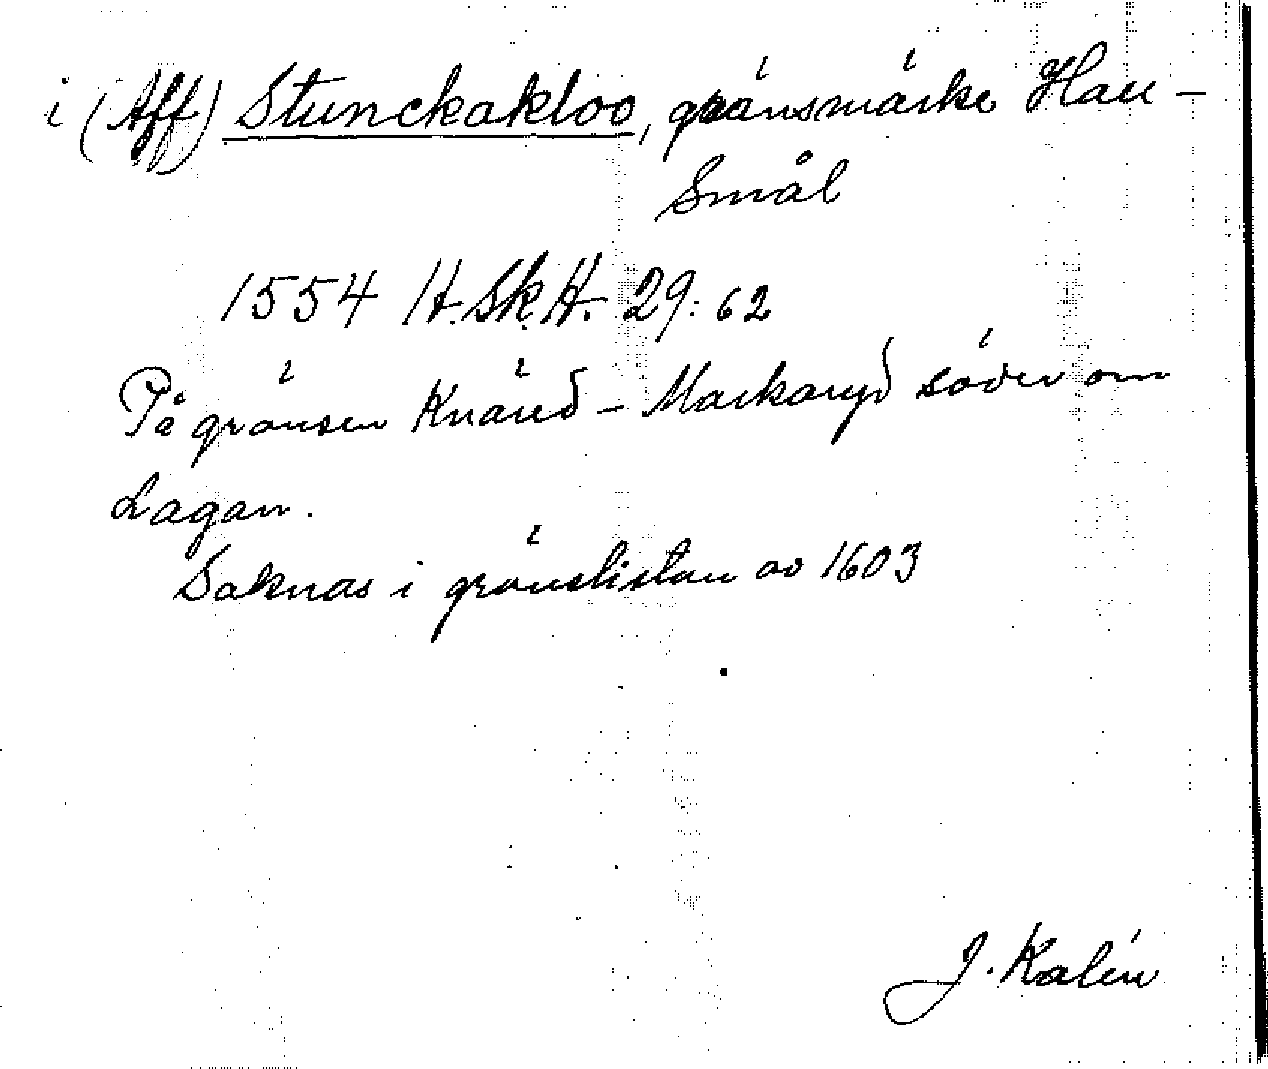 i (Aff) Stunckakloo, gränsmärke Hall –
Smål
1554 H.Sk.H. 29:62
På gränsen Knäred – Markaryd söder om
Lagan.
Saknas i gränslistan av 1603
J. Kalén